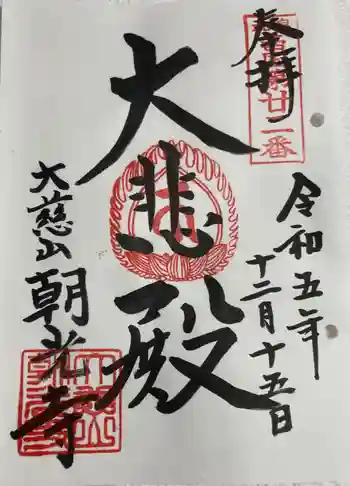 奉拝
令和五年
十二月十五日
大悲殿
大慈山
朝光寺
廿一番